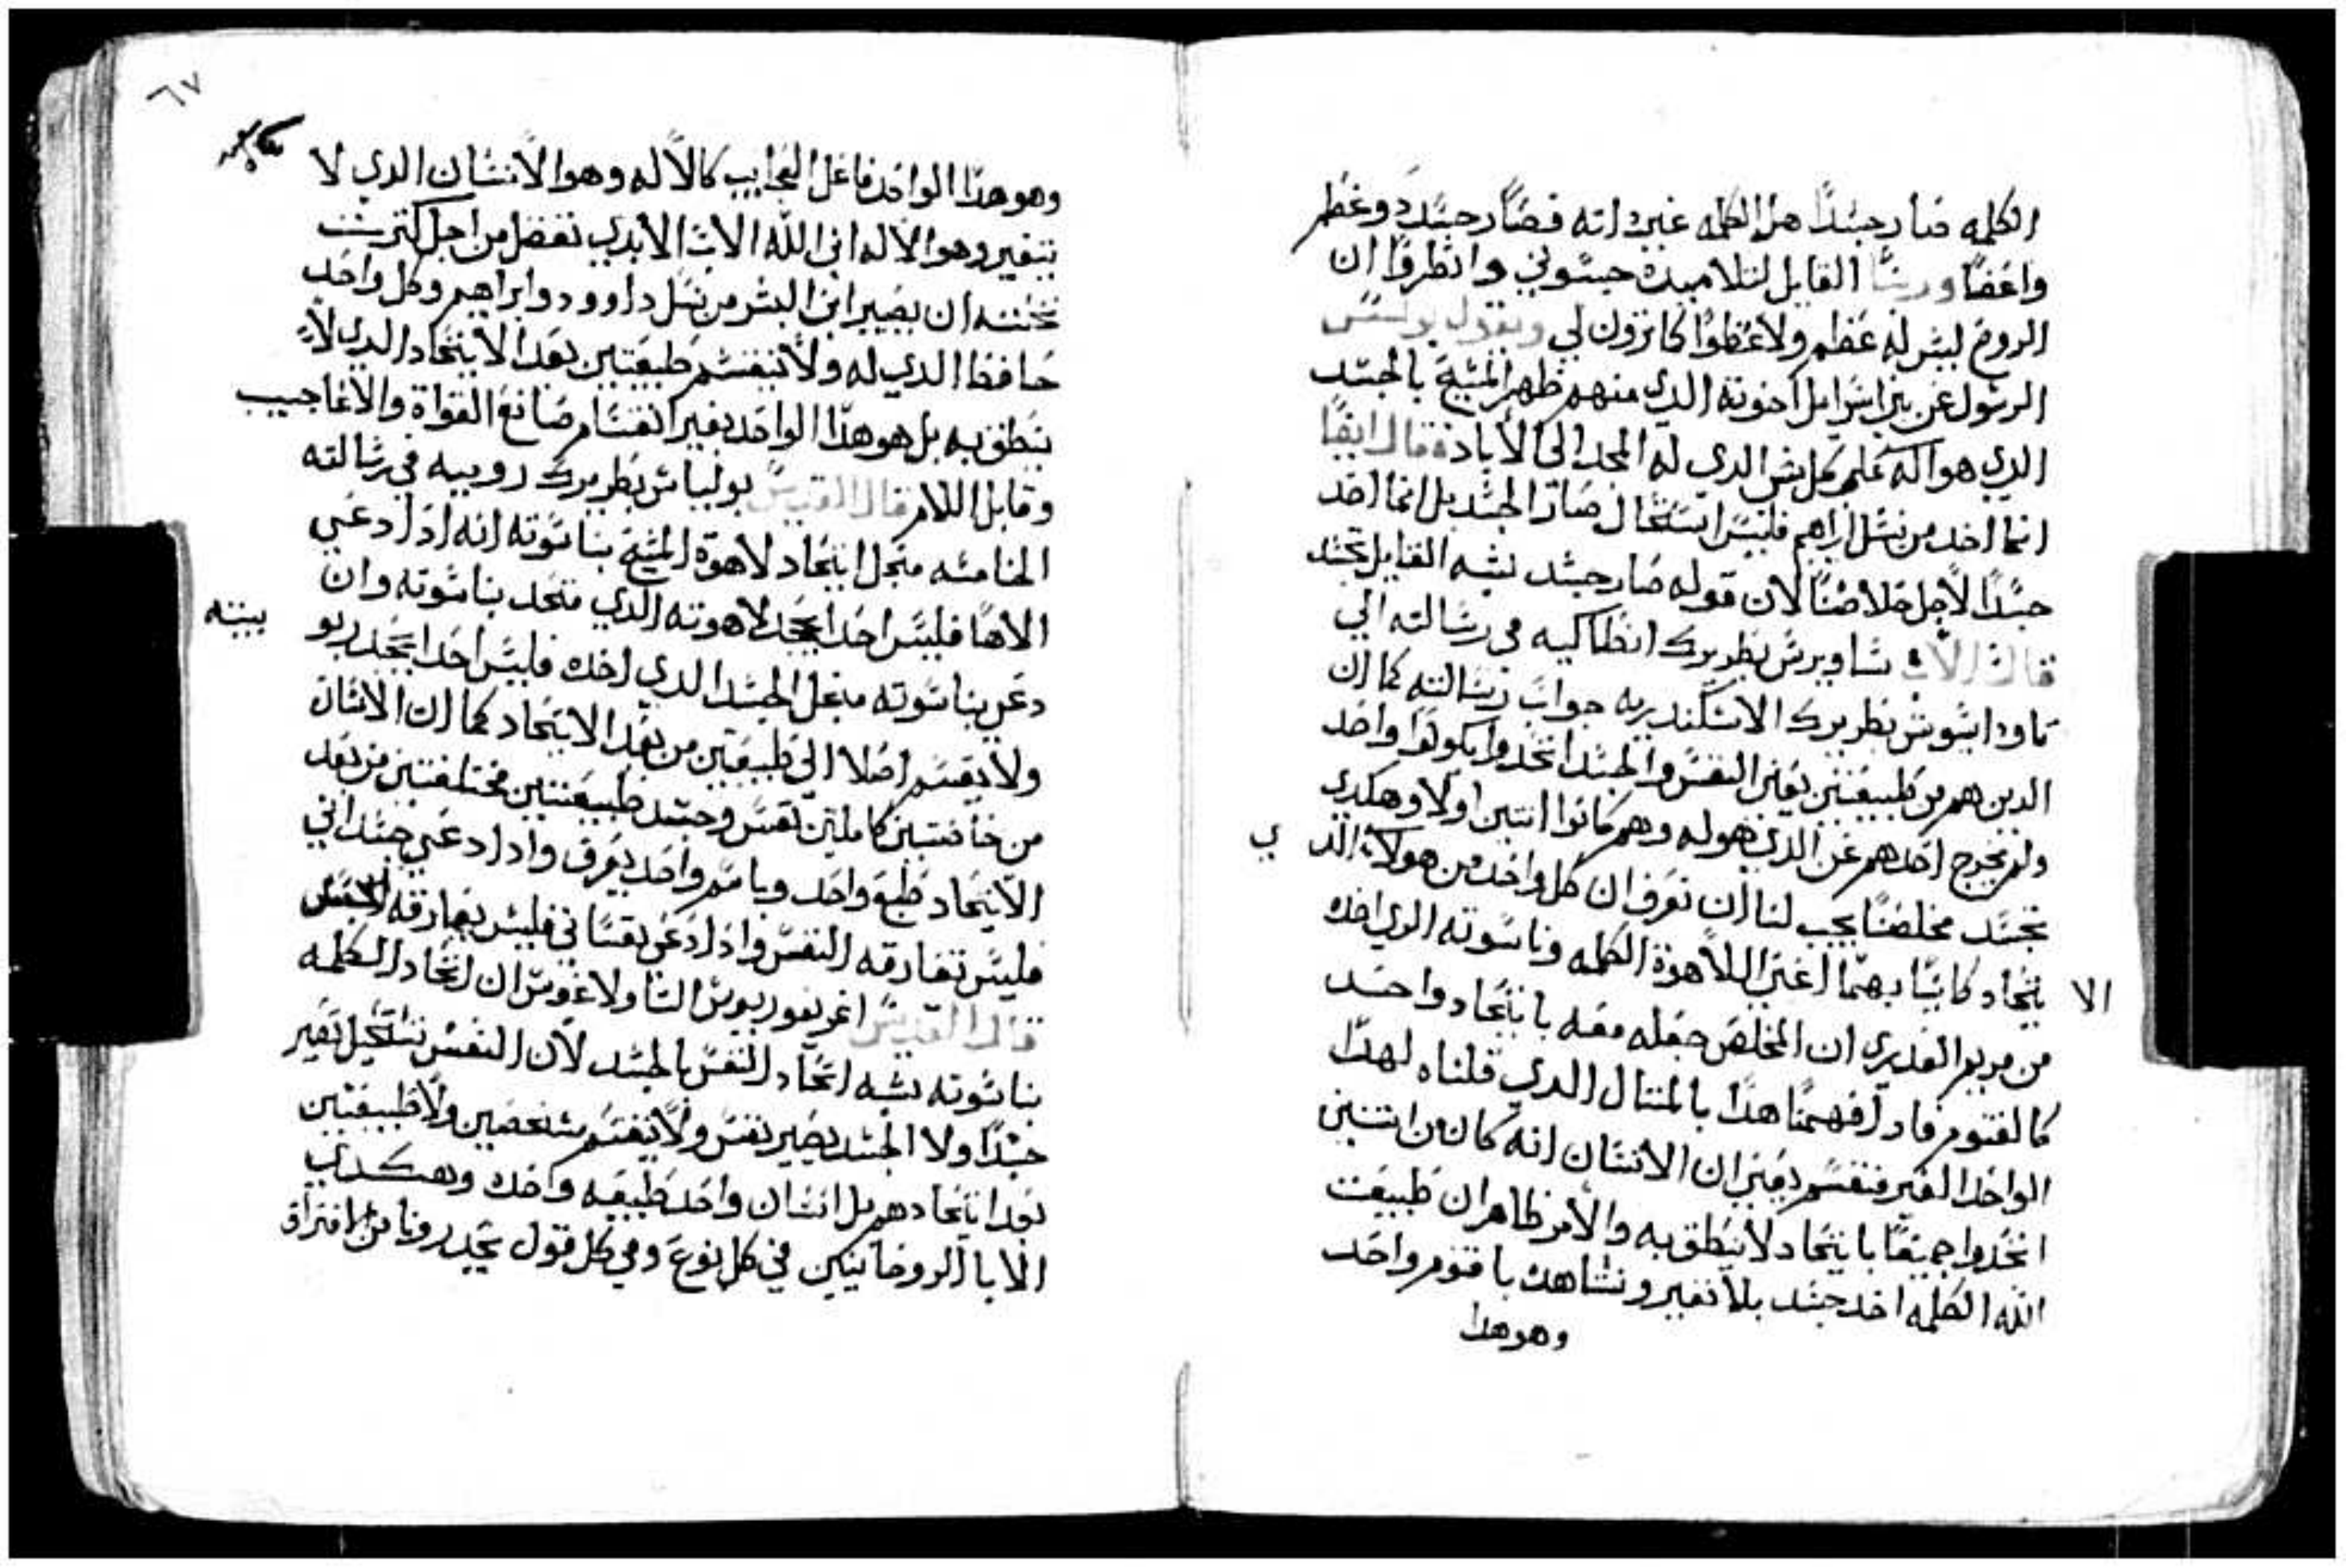 الكلمه صار جسدًا هل الكلمه غير ذاته فصار جسد ذو عظم
واعضا وربنا القايل لتلاميده جسوني وانظروا ان
الروح ليس له عظم ولا عظوا كما ترون لي ويقول بولس
الرسول عن بني اسرايل اخوته الدي منهم ظهر المسيح بالجسد
الدي هو اله علي كل شي الدي له المجد الي الاباد فقال ايضًا
انما اخد من نسل ابراهيم فليس استحال صار الجسد بل انما اخد
جسدًا لاجل خلاصنا لان قوله صار جسد يشبه القايل تجسد
قال الاب ساويرس بطريرك انطاكيه في رسالته الي
تاوداسيوس بطريرك الاسكندريه جواب رسالته كما ان
الدين هم من طبيعتين يعني النفس والجسد اتحدوا يكونوا واحد
ولم يخرج احدهم عن الدي هو له وهم كانوا اتنين اولًا وهكدي
تجسد مخلصنا يجب لنا ان نعرف ان كل واحد من هولاء الد ي
الا يتحاد كاينًا بهما اعني اللاهوة الكلمه وناسوته الدي اخده
من مريم العدري ان المخلص جعله معه بايتحاد واحد
كالقنوم فاد افهمنا هدا بالمتال الدي قلناه لهدا
الواحد الغير منقسم يعني ان الانسان انه كان من اتنين
اتحدوا جميعًا بايتحاد لا ينطق به والامر ظاهر ان طبيعت
الله الكلمه اخد جسد بلا تغير ونشاهده باقنوم واحد
وهو هدا
٦٧
وهو هدا الواحد فاعل العجايب كالاله وهو الانسان الدي لا
يتغير وهو الاله ابن الله الاب الابدي تفضل من اجل كترت
تحننه ان يصير ابن البشر من نسل داوود وابراهيم وكل واحد
حافظ الدي له ولا تنقسم طبيعتين بعد الايتحاد الدي لا
ينطق به بل هو هدا الواحد بغير انقسام صانع القواة والاعاجيب
وقابل الالام قال القديس يوليانس بطريرك روميه في رسالته
الخامسه من اجل ايتحاد لاهوة المسيح بناسوته انه اد ادعي
الاهًا فليس احدا يجحد لاهوته الدي متحد بناسوته وان
دعي بناسوته من اجل الجسد الدي اخده فليس احدا يجحد ربو بيته
ولا يقسم اصلا الي طبيعتين من بعد الايتحاد كما ان الانسان
من خاصتين كاملتين نفس وجسد طبيعتين مختلفتين من بعد
الايتحاد طبع واحد وباسم واحد يعرف وادا دعي جسداني
فليس تفارقه النفس وادا دعي نفساني فليس يفارقه الجسد
قال القديس اغريغوريوس التاولاغوس ان اتحاد الكلمه
بناسوته يشبه اتحاد النفس بالجسد لان النفس تستحيل تصير
جسدًا ولا الجسد يصير نفس ولا ينقسم شخصين ولا طبيعتين
بعد ايتحادهم بل انسان واحد طبيعه واحده وهكدي
الابا الروحانيين في كل نوع وفي كل قول يحدرونا من افتراق